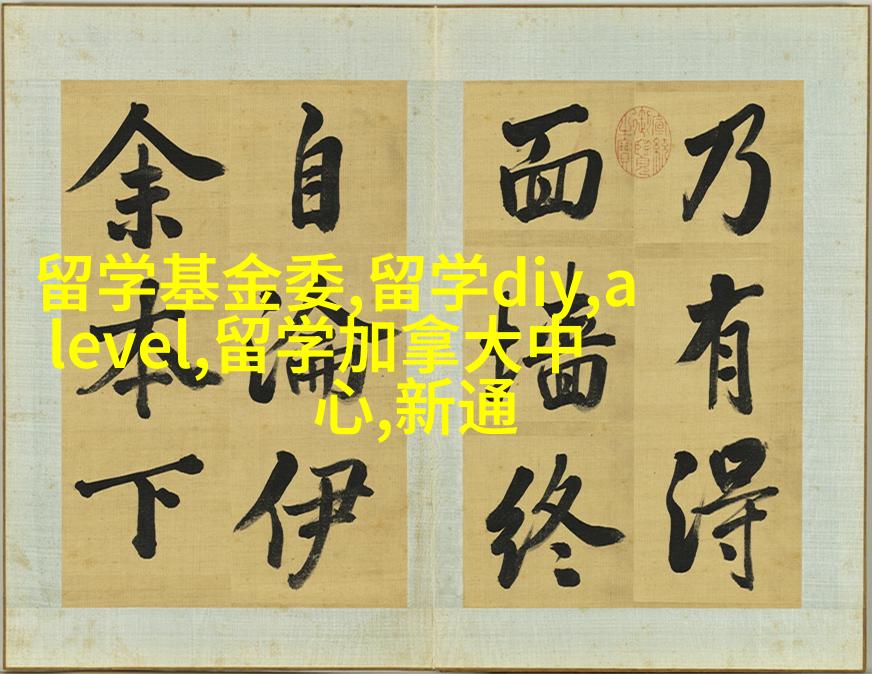 乃有得
面墻終
自論伊
余本下
留学基金委,留学diy,a
level,留学加拿大中
心,新通